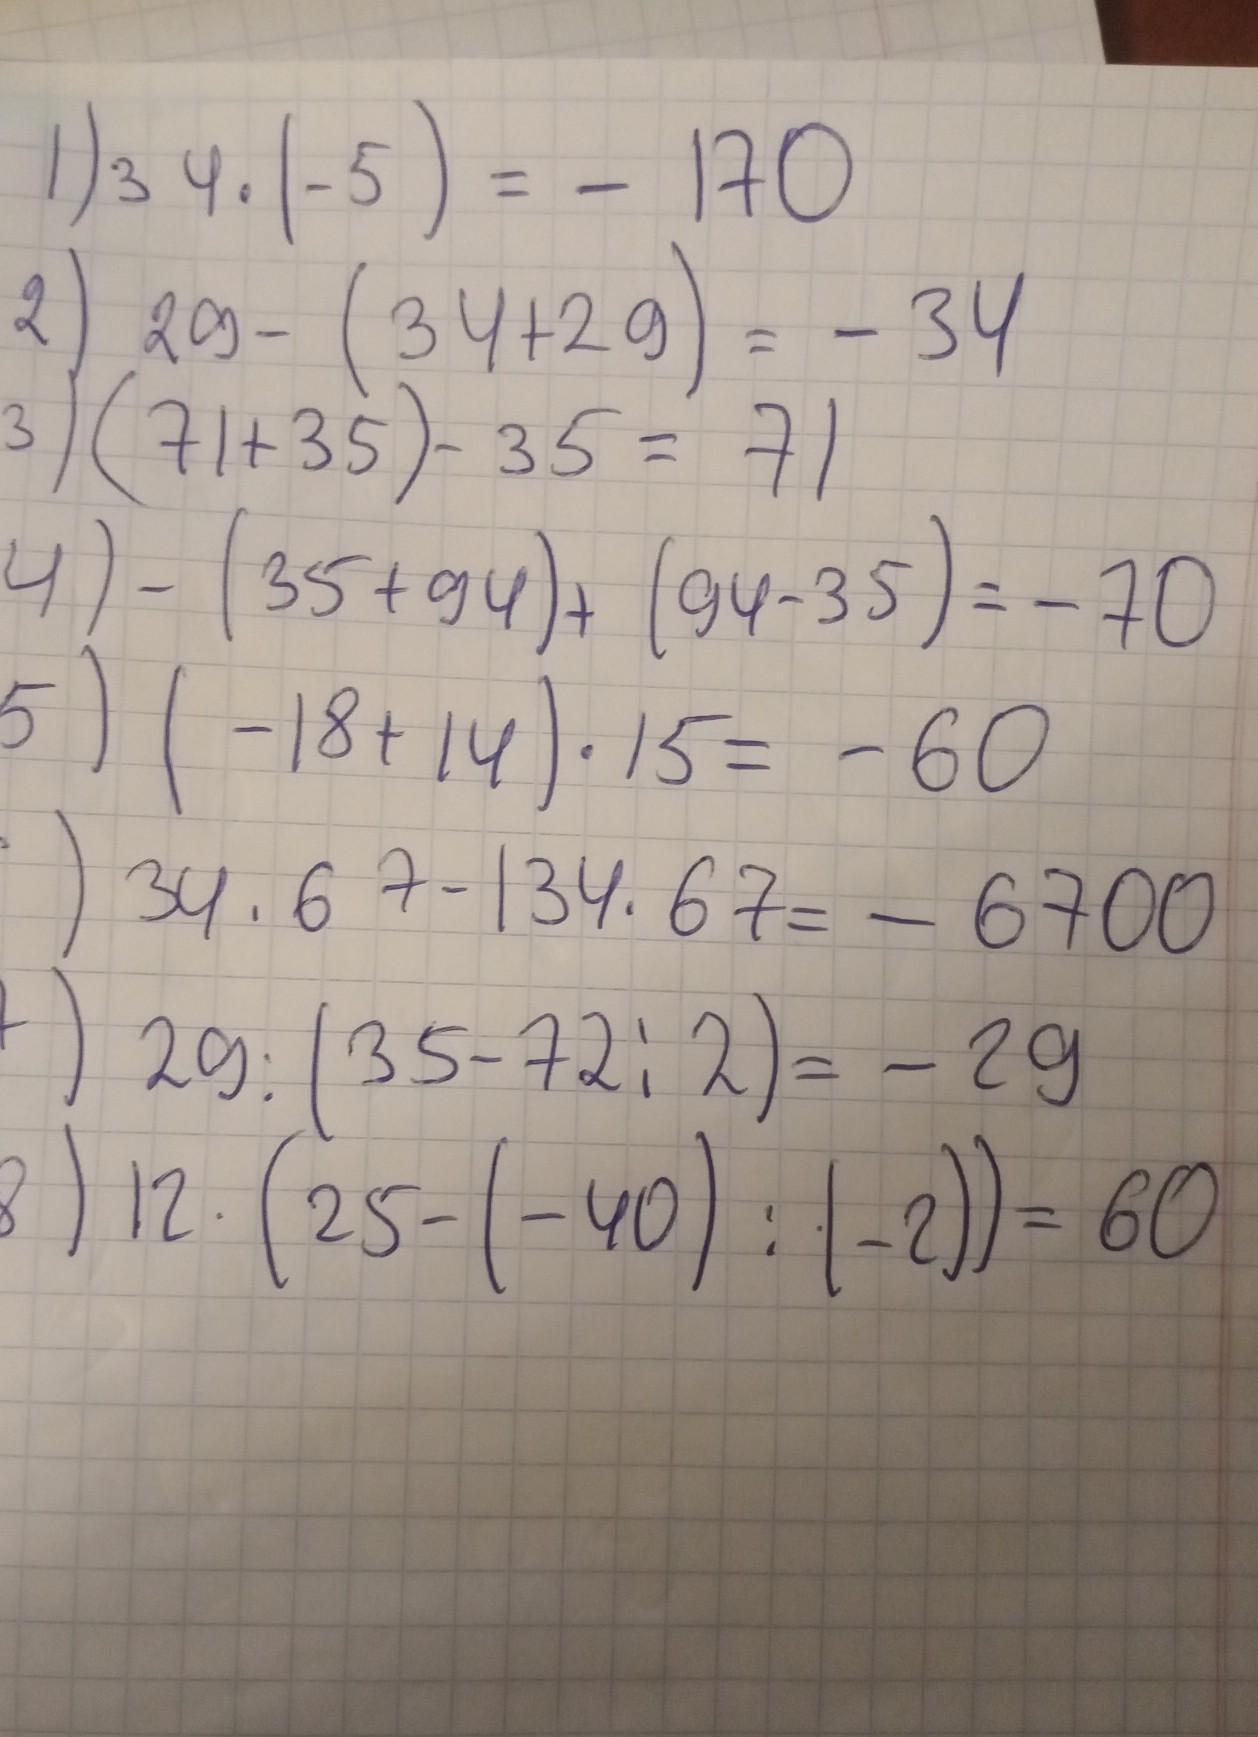 1) 34 · (-5) = - 170
2) 29 - (34+29) = - 34
3) (71+35) - 35 = 71
4) - (35+94) + (94-35) = - 70
5) (-18+14) · 15 = - 60
) 34 · 67 - 134 · 67 = - 6700
7) 29 : (35 - 72 : 2) = - 29
8) 12 · (25 - (-40) : (-2)) = 60